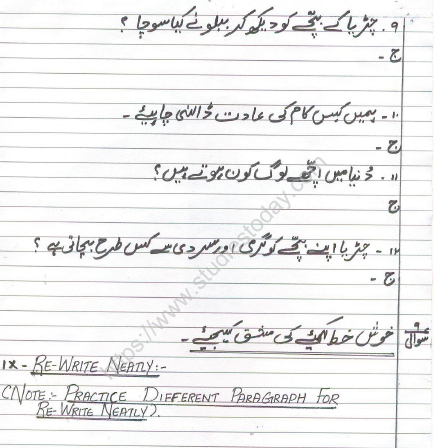 ۹۔ چڑیا کے بچّے کو دیکھ کر ببلو نے کیا سوچا ؟
ج -
۱۰- ہمیں کس کام کی عادت ڈالنی چاہیئے -
ج -
۱۱- دُنیا میں اچھّے لوگ کون ہوتے ہیں ؟
ج
۱۲- چڑیا اپنے بچّے کو گرمی اور سردی سے کس طرح بچاتی ہے ؟
ج -
سوال ۹ خوش خط لکھنے کی مشق کیجیئے -
IX - RE-WRITE NEATLY:-
(NOTE:- PRACTICE DIFFERENT PARAGRAPH FOR
RE-WRITE NEATLY).
https://www.studiestoday.com